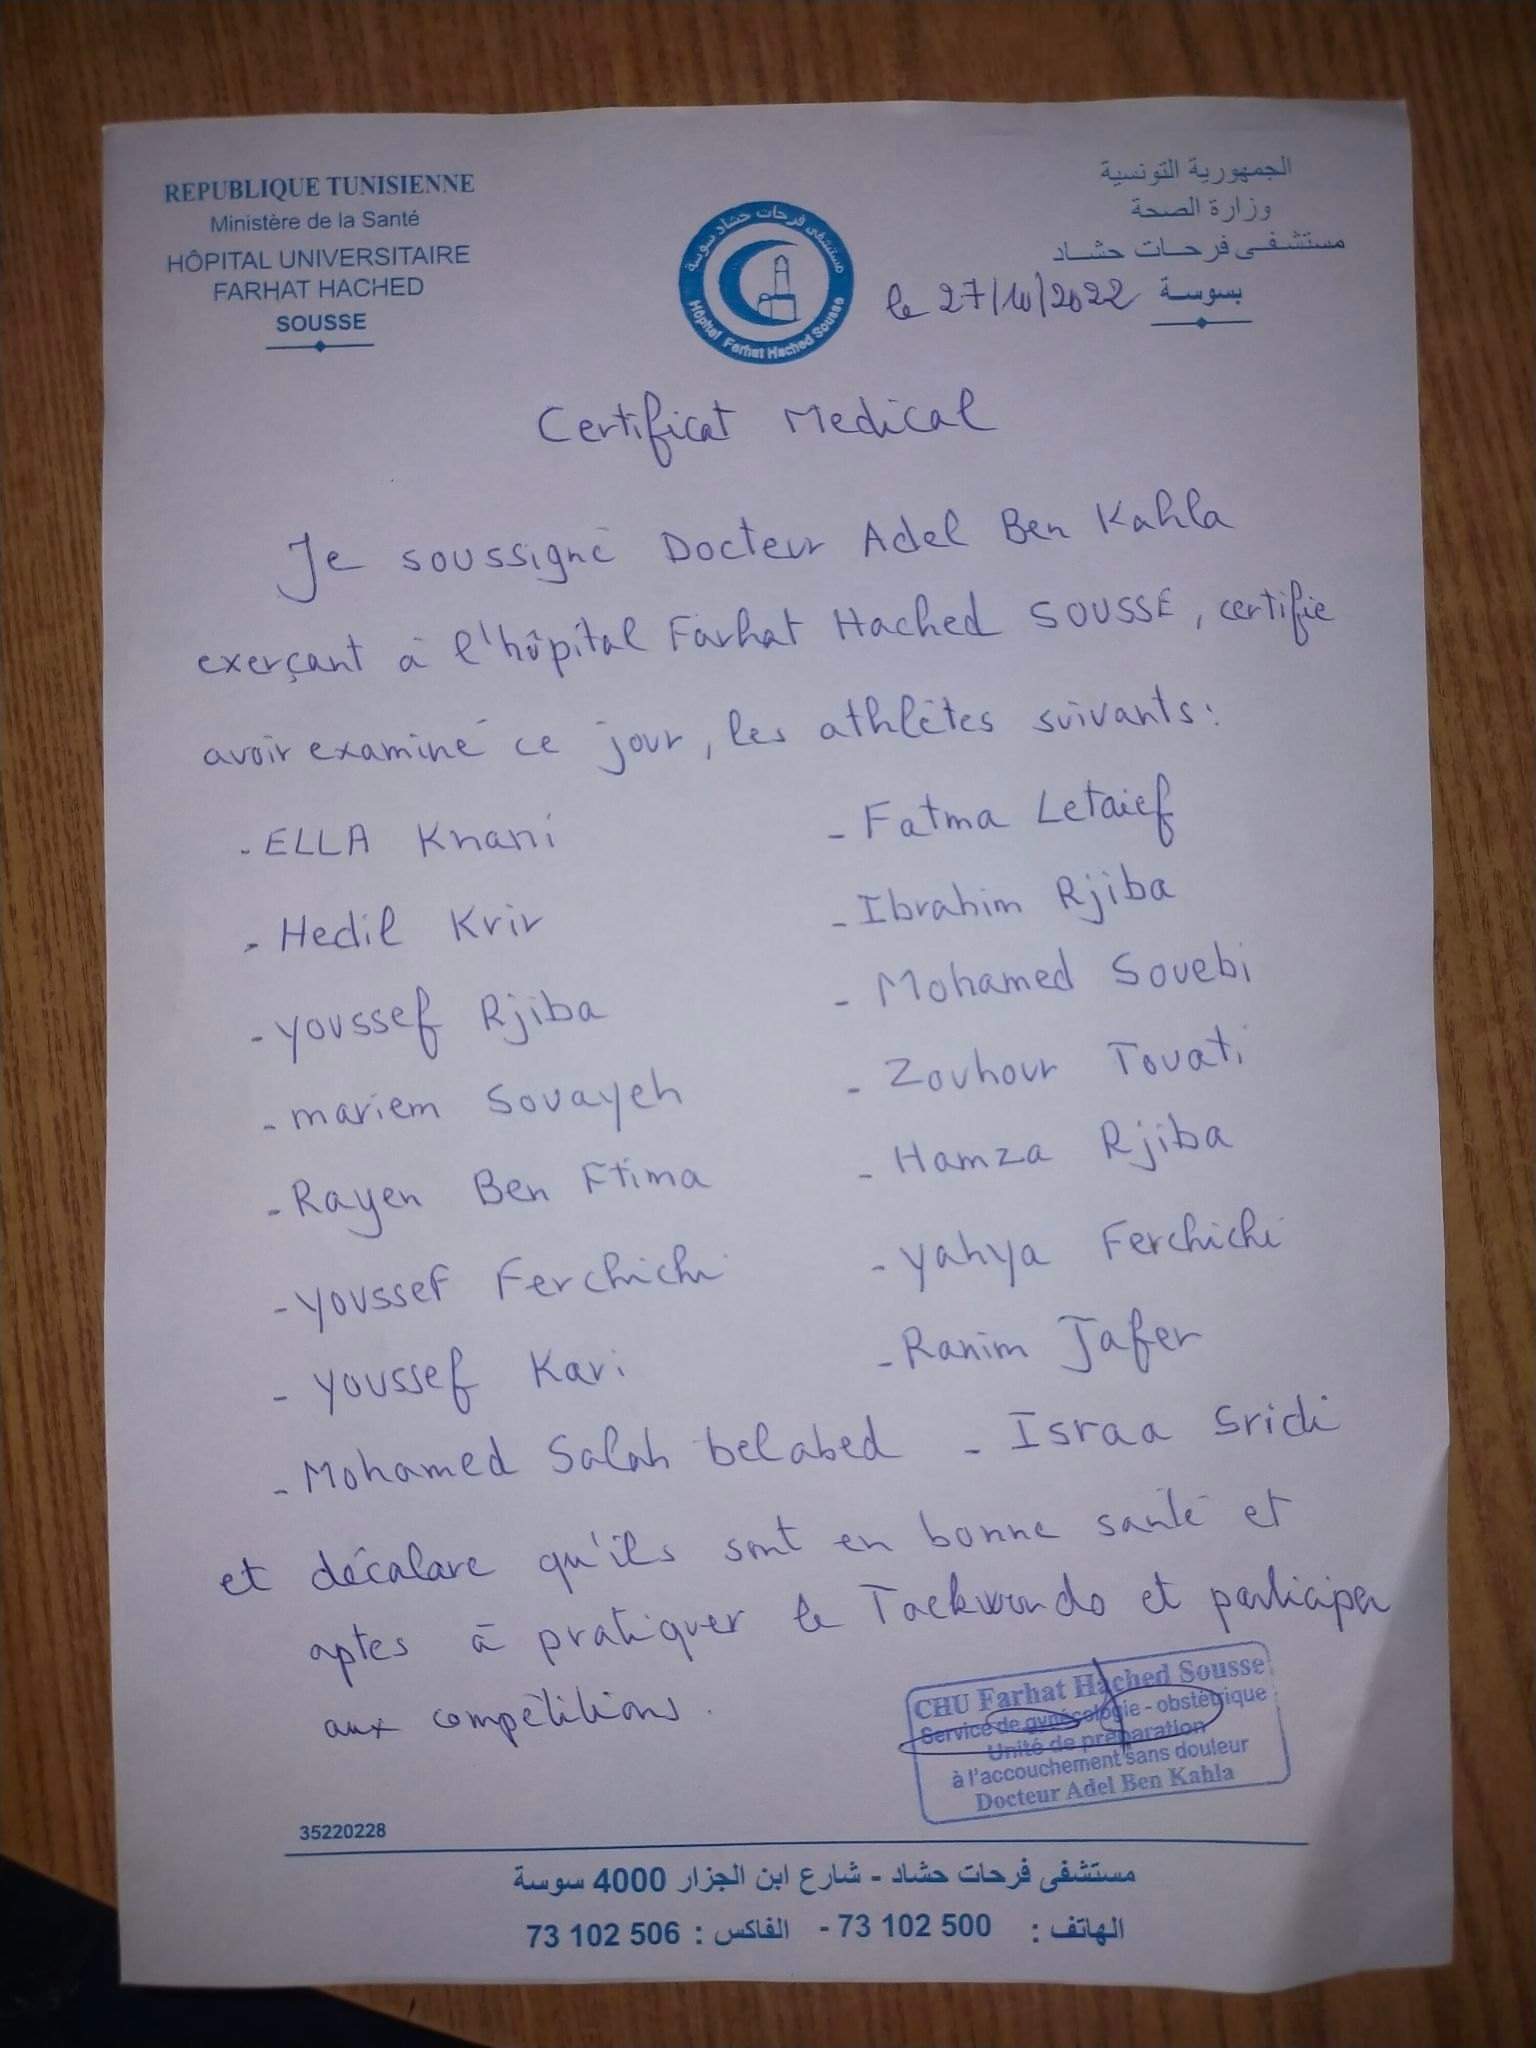 REPUBLIQUE TUNISIENNE
Ministère de la Santé
HÔPITAL UNIVERSITAIRE
FARHAT HACHED
SOUSSE
مستشفى فرحات حشاد سوسة
Hôpital Farhat Hached Sousse
الجمهورية التونسية
وزارة الصحة
مستشفى فرحات حشاد
بسوسة
le 27/10/2022
Certificat Medical
Je soussigné Docteur Adel Ben Kahla
exerçant à l'hôpital Farhat Hached SOUSSE, certifie
avoir examiné ce jour, les athlètes suivants:
- ELLA Knani - Fatma Letaief
- Hedil Krir - Ibrahim Rjiba
- Youssef Rjiba - Mohamed Souebi
- mariem Souayeh - Zouhour Touati
- Rayen Ben Ftima - Hamza Rjiba
- Youssef Ferchichi - Yahya Ferchichi
- Youssef Kari - Ranim Jafer
- Mohamed Salah belabed - Israa Sridi
et décalare qu'ils sont en bonne santé et
aptes à pratiquer le Taekwondo et participer
aux compétitions.
CHU Farhat Hached Sousse
Service de gynécologie - obstétrique
Unité de préparation
à l'accouchement sans douleur
Docteur Adel Ben Kahla
35220228
مستشفى فرحات حشاد - شارع ابن الجزار 4000 سوسة
الهاتف : 73 102 500 - الفاكس : 73 102 506